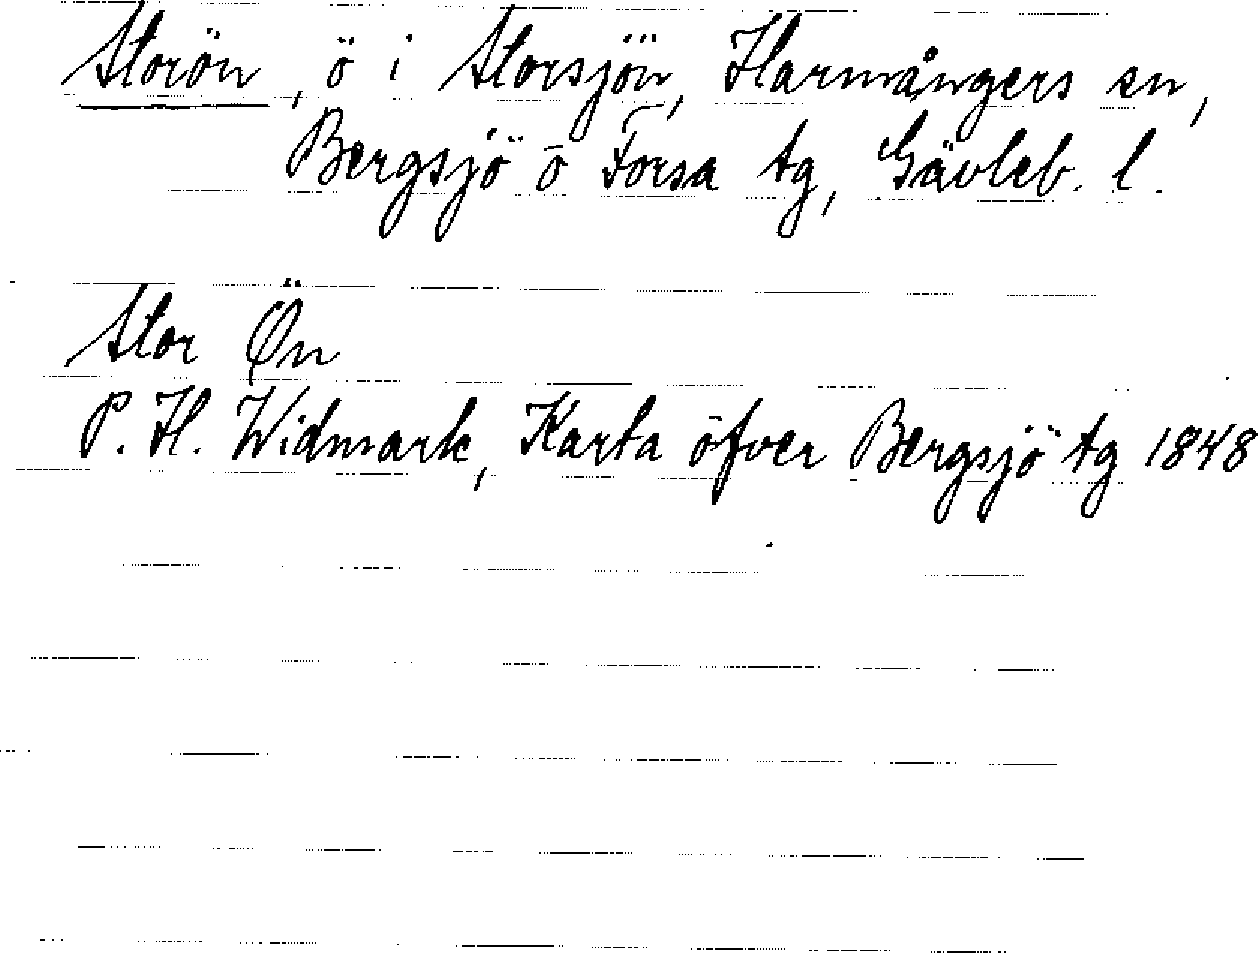 Storön, ö i Storsjön, Harmångers sn,
Bergsjö o Forsa tg, Gävleb. l.
Stor Ön
P. H. Widmark, Karta öfver Bergsjö tg 1848